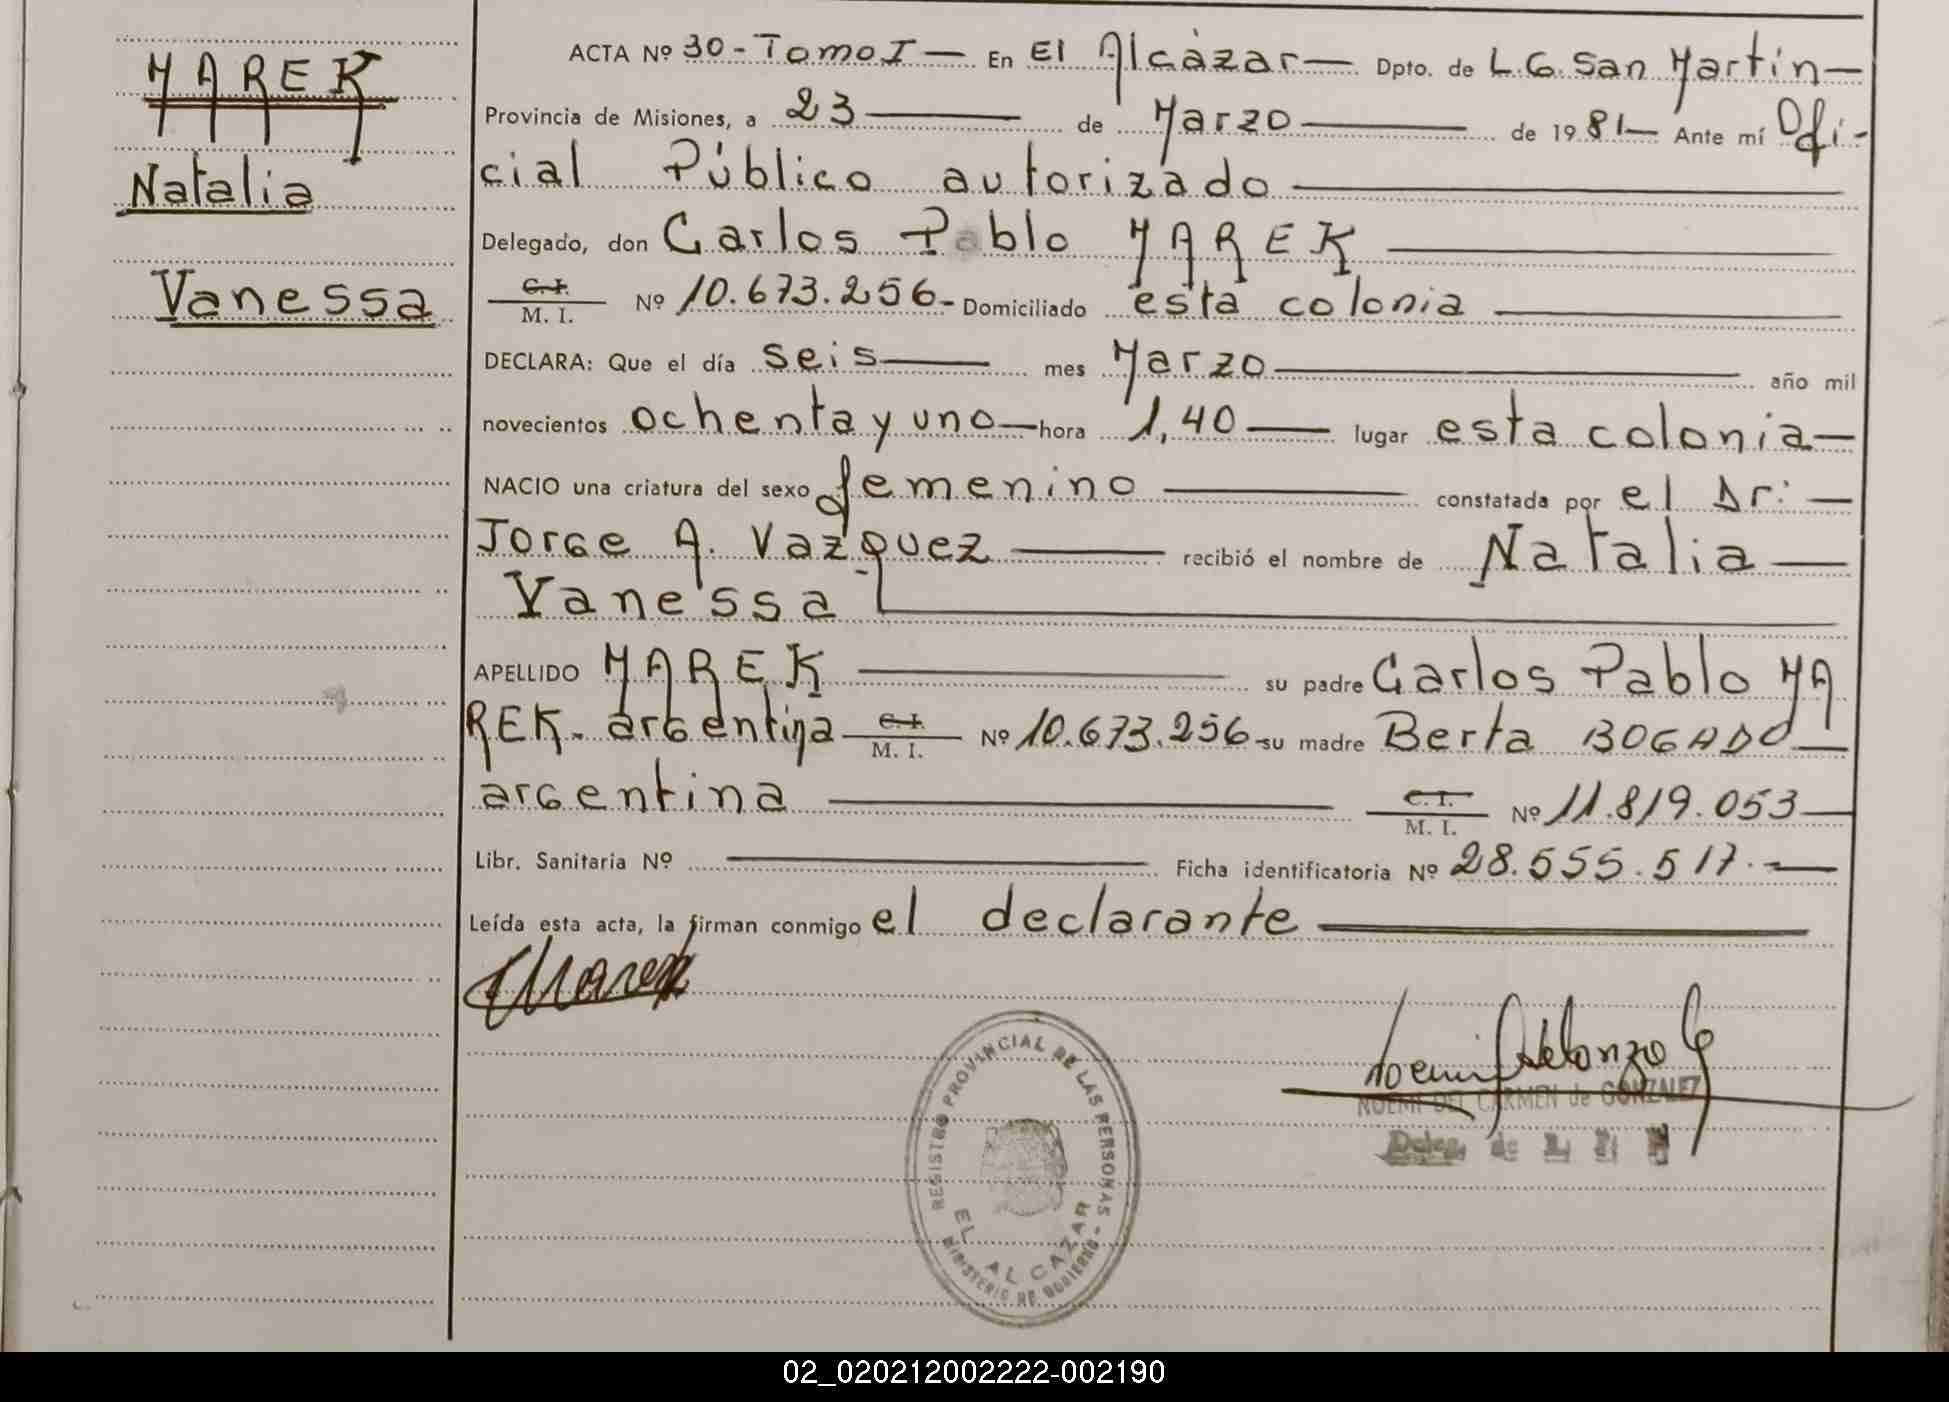 MAREK
Natalia
Vanessa
ACTA Nº 30-Tomo I— En El Alcázar— Dpto. de L.G. San Martín—
Provincia de Misiones, a 23 — de Marzo — de 1981— Ante mí Ofi-
cial Público autorizado —
Delegado, don Carlos Pablo MAREK —
C.I. / M. I. Nº 10.673.256- Domiciliado esta colonia —
DECLARA: Que el día seis — mes Marzo — año mil
novecientos ochenta y uno — hora 1,40 — lugar esta colonia—
NACIO una criatura del sexo femenino — constatada por el Dr. —
Jorge A. Vazquez — recibió el nombre de Natalia —
Vanessa —
APELLIDO MAREK — su padre Carlos Pablo MA
REK- argentina — C.I. / M. I. Nº 10.673.256- su madre Berta BOGADO —
argentina — C. I. / M. I. Nº 11.819.053—
Libr. Sanitaria Nº — Ficha identificatoria Nº 28.555.517.—
Leída esta acta, la firman conmigo el declarante —
CMarek
REGISTRO PROVINCIAL DE LAS PERSONAS -
MINISTERIO DE GOBIERNO -
EL ALCAZAR
NOEMI DEL CARMEN de GONZALEZ
02_020212002222-002190